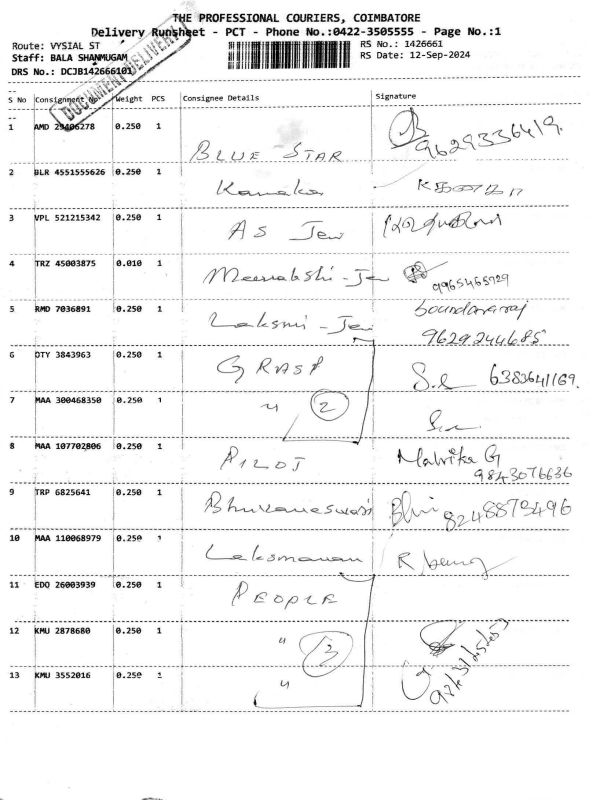 THE PROFESSIONAL COURIERS, COIMBATORE
Delivery Runsheet - PCT - Phone No.:0422-3505555 - Page No.:1
Route: VYSIAL ST
RS No.: 1426661
Staff: BALA SHANMUGAM
RS Date: 12-Sep-2024
DRS No.: DCJB142666101
DOCUMENT DELIVERY
S No Consignment No Weight PCS Consignee Details Signature
1 AMD 29406278 0.250 1 BLUE STAR 9629336419.
2 BLR 4551555626 0.250 1 Kanaka
3 VPL 521215342 0.250 1 AS Jew
4 TRZ 45003875 0.010 1 Meenakshi-Je 9965465729
5 RMD 7036891 0.250 1 Laksmi-Jew Soundararaj
9629244685
6 OTY 3843963 0.250 1 GRASP S.L 6383641169.
7 MAA 300468350 0.250 1 " 2
8 MAA 107702806 0.250 1 PILOT Malvika G
9843076636
9 TRP 6825641 0.250 1 Bhuvaneswari 8248873496
10 MAA 110068979 0.250 1 Laksmanan
11 EDQ 26003939 0.250 1 PEOPLE
12 KMU 2878680 0.250 1 " 3
13 KMU 3552016 0.250 1 "